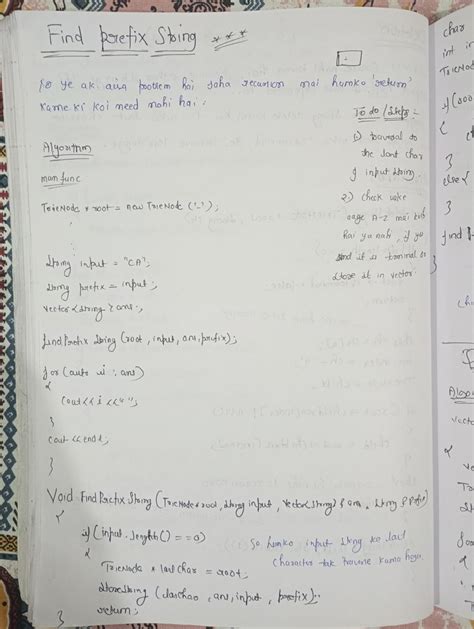 Find Prefix String ***
So ye ak aisa problem hai jaha recursion mai humko 'return'
karne ki koi need nahi hai.
Algorithm
main func
TrieNode * root = new TrieNode ('-');
:
String input = "CA";
String prefix = input;
vector<string> ans;
findPrefix String (root, input, ans, prefix);
for (auto i : ans)
{
cout << i << " ";
}
cout << endl;
To do / Steps :-
1) traversal to
the last char
of input string.
2) check wake
aage A-Z mei kuch
hai ya nahi, if yes
and it is terminal so
store it in vector.
Void FindPrefix String (TrieNode * root, string input, vector<string> & ans, string & prefix)
{
if (input.length() == 0)
{
TrieNode * lastchar = root;
StoreString (lastchar, ans, input, prefix);
return;
}
So humko input string ke last
character tak traverse karna hoga
char
int i
TrieNod
if (roo
{
}
else {
}
find P
}
vecto
for
{